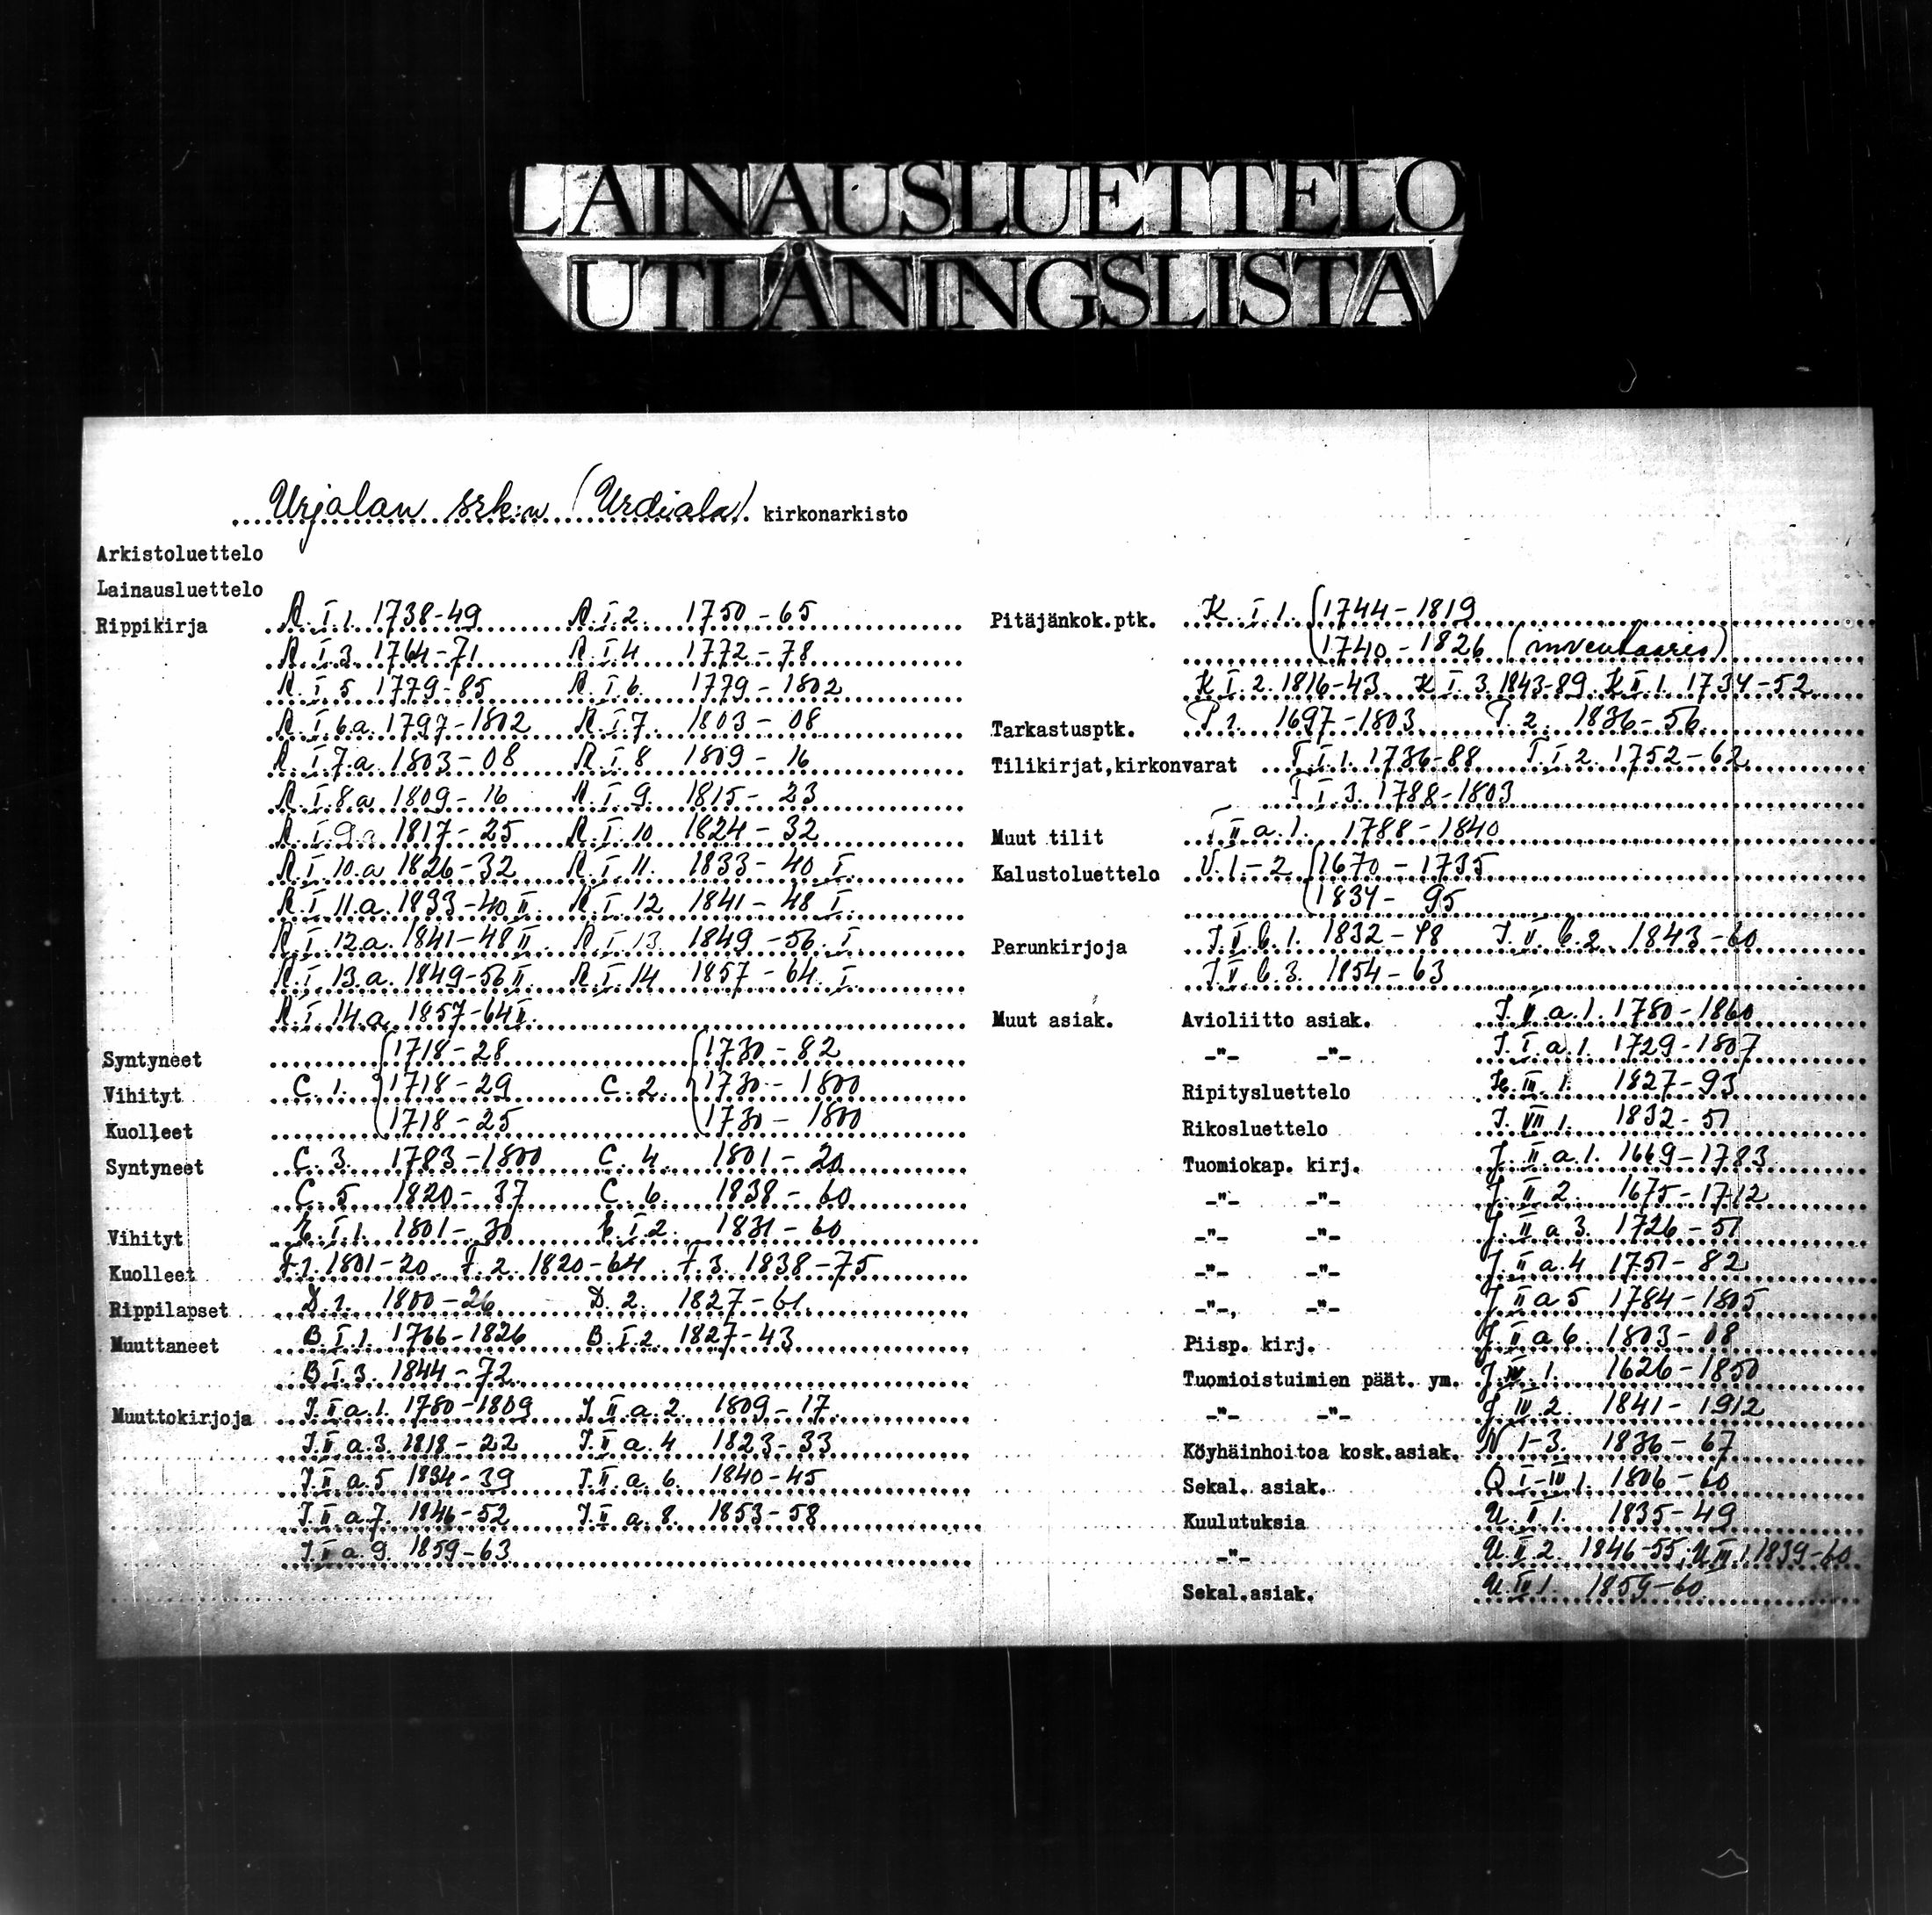 LAINAUSLUETTELO
UTLÅNINGSLISTA
Urjalan srk:n (Urdiala) kirkonarkisto
Arkistoluettelo
Lainausluettelo
Rippikirja R.I.1. 1738-49 R.I.2. 1750-65
R.I.3. 1764-71 R.I.4 1772-78
R.I.5 1779-85 R.I.6. 1779-1802
R.I.6.a. 1797-1802 R.I.7. 1803-08
R.I.7.a. 1803-08 R.I.8 1809-16
R.I.8.a 1809-16 R.I.9. 1815-23
R.I.9.a 1817-25 R.I.10 1824-32
R.I.10.a 1826-32 R.I.11. 1833-40 I.
R.I.11.a. 1833-40 II. R.I.12 1841-48 I.
R.I.12.a. 1841-48 II. R.I.13. 1849-56. I.
R.I.13.a. 1849-56 II R.I.14 1857-64. I.
R.I.14.a 1857-64 II.
Syntyneet 1718-28 1730-82
Vihityt C.1. 1718-29 C.2. 1730-1800
Kuolleet 1718-25 1730-1800
Syntyneet C.3. 1783-1800 C.4. 1801-20
C.5 1820-37 C.6. 1838-60
Vihityt E.I.1. 1801-30 E.I.2. 1831-60
Kuolleet F.1. 1801-20 F.2. 1820-64 F.3. 1838-75
Rippilapset D.1. 1800-26 D.2. 1827-61
Muuttaneet B.I.1. 1766-1826 B.I.2. 1827-43
B.I.3. 1844-72
Muuttokirjoja J.II a.1. 1780-1809 J.II.a.2. 1809-17
J.II a.3. 1818-22 J.II a.4 1823-33
J.II a.5 1834-39 J.II a.6. 1840-45
J.II a.7. 1846-52 J.II a.8. 1853-58
J.II a.9. 1859-63
Pitäjänkok.ptk. K.I.1. 1744-1819
1740-1826 (inventaario)
K I.2. 1816-43 K I.3. 1843-89 K II.1. 1734-52
Tarkastusptk. P 1. 1697-1803 P.2. 1836-56
Tilikirjat,kirkonvarat T.I.1. 1736-88 T.I.2. 1752-62
T I.3. 1788-1803
Muut tilit T II a.1. 1788-1840
Kalustoluettelo V.1-2 1670-1735
1834-95
Perunkirjoja J.V.b.1. 1832-48 J.V.b.2. 1843-60
J.V.b.3. 1854-63
Muut asiak. Avioliitto asiak. J.V.a.1. 1780-1860
-"- -"- J.I.a.1. 1729-1807
Ripitysluettelo H.III.1. 1827-93
Rikosluettelo J.VII 1. 1832-51
Tuomiokap. kirj. J.II.a.1. 1669-1783
-"- -"- J.II 2. 1675-1712
-"- -"- J.II a 3. 1726-51
-"- -"- J.II a.4 1751-82
-"-, -"- J II a 5 1784-1805
Piisp. kirj. J.II a 6. 1803-08
Tuomioistuimien päät. ym. J.IV.1. 1626-1850
-"- -"- J.IV 2. 1841-1912
Köyhäinhoitoa kosk.asiak. N 1-3. 1836-67
Sekal. asiak. Q I-IV 1. 1806-60
Kuulutuksia U.II.1. 1835-49
-"- U II 2. 1846-55, U III 1. 1839-60
Sekal.asiak. U.IV 1. 1859-60